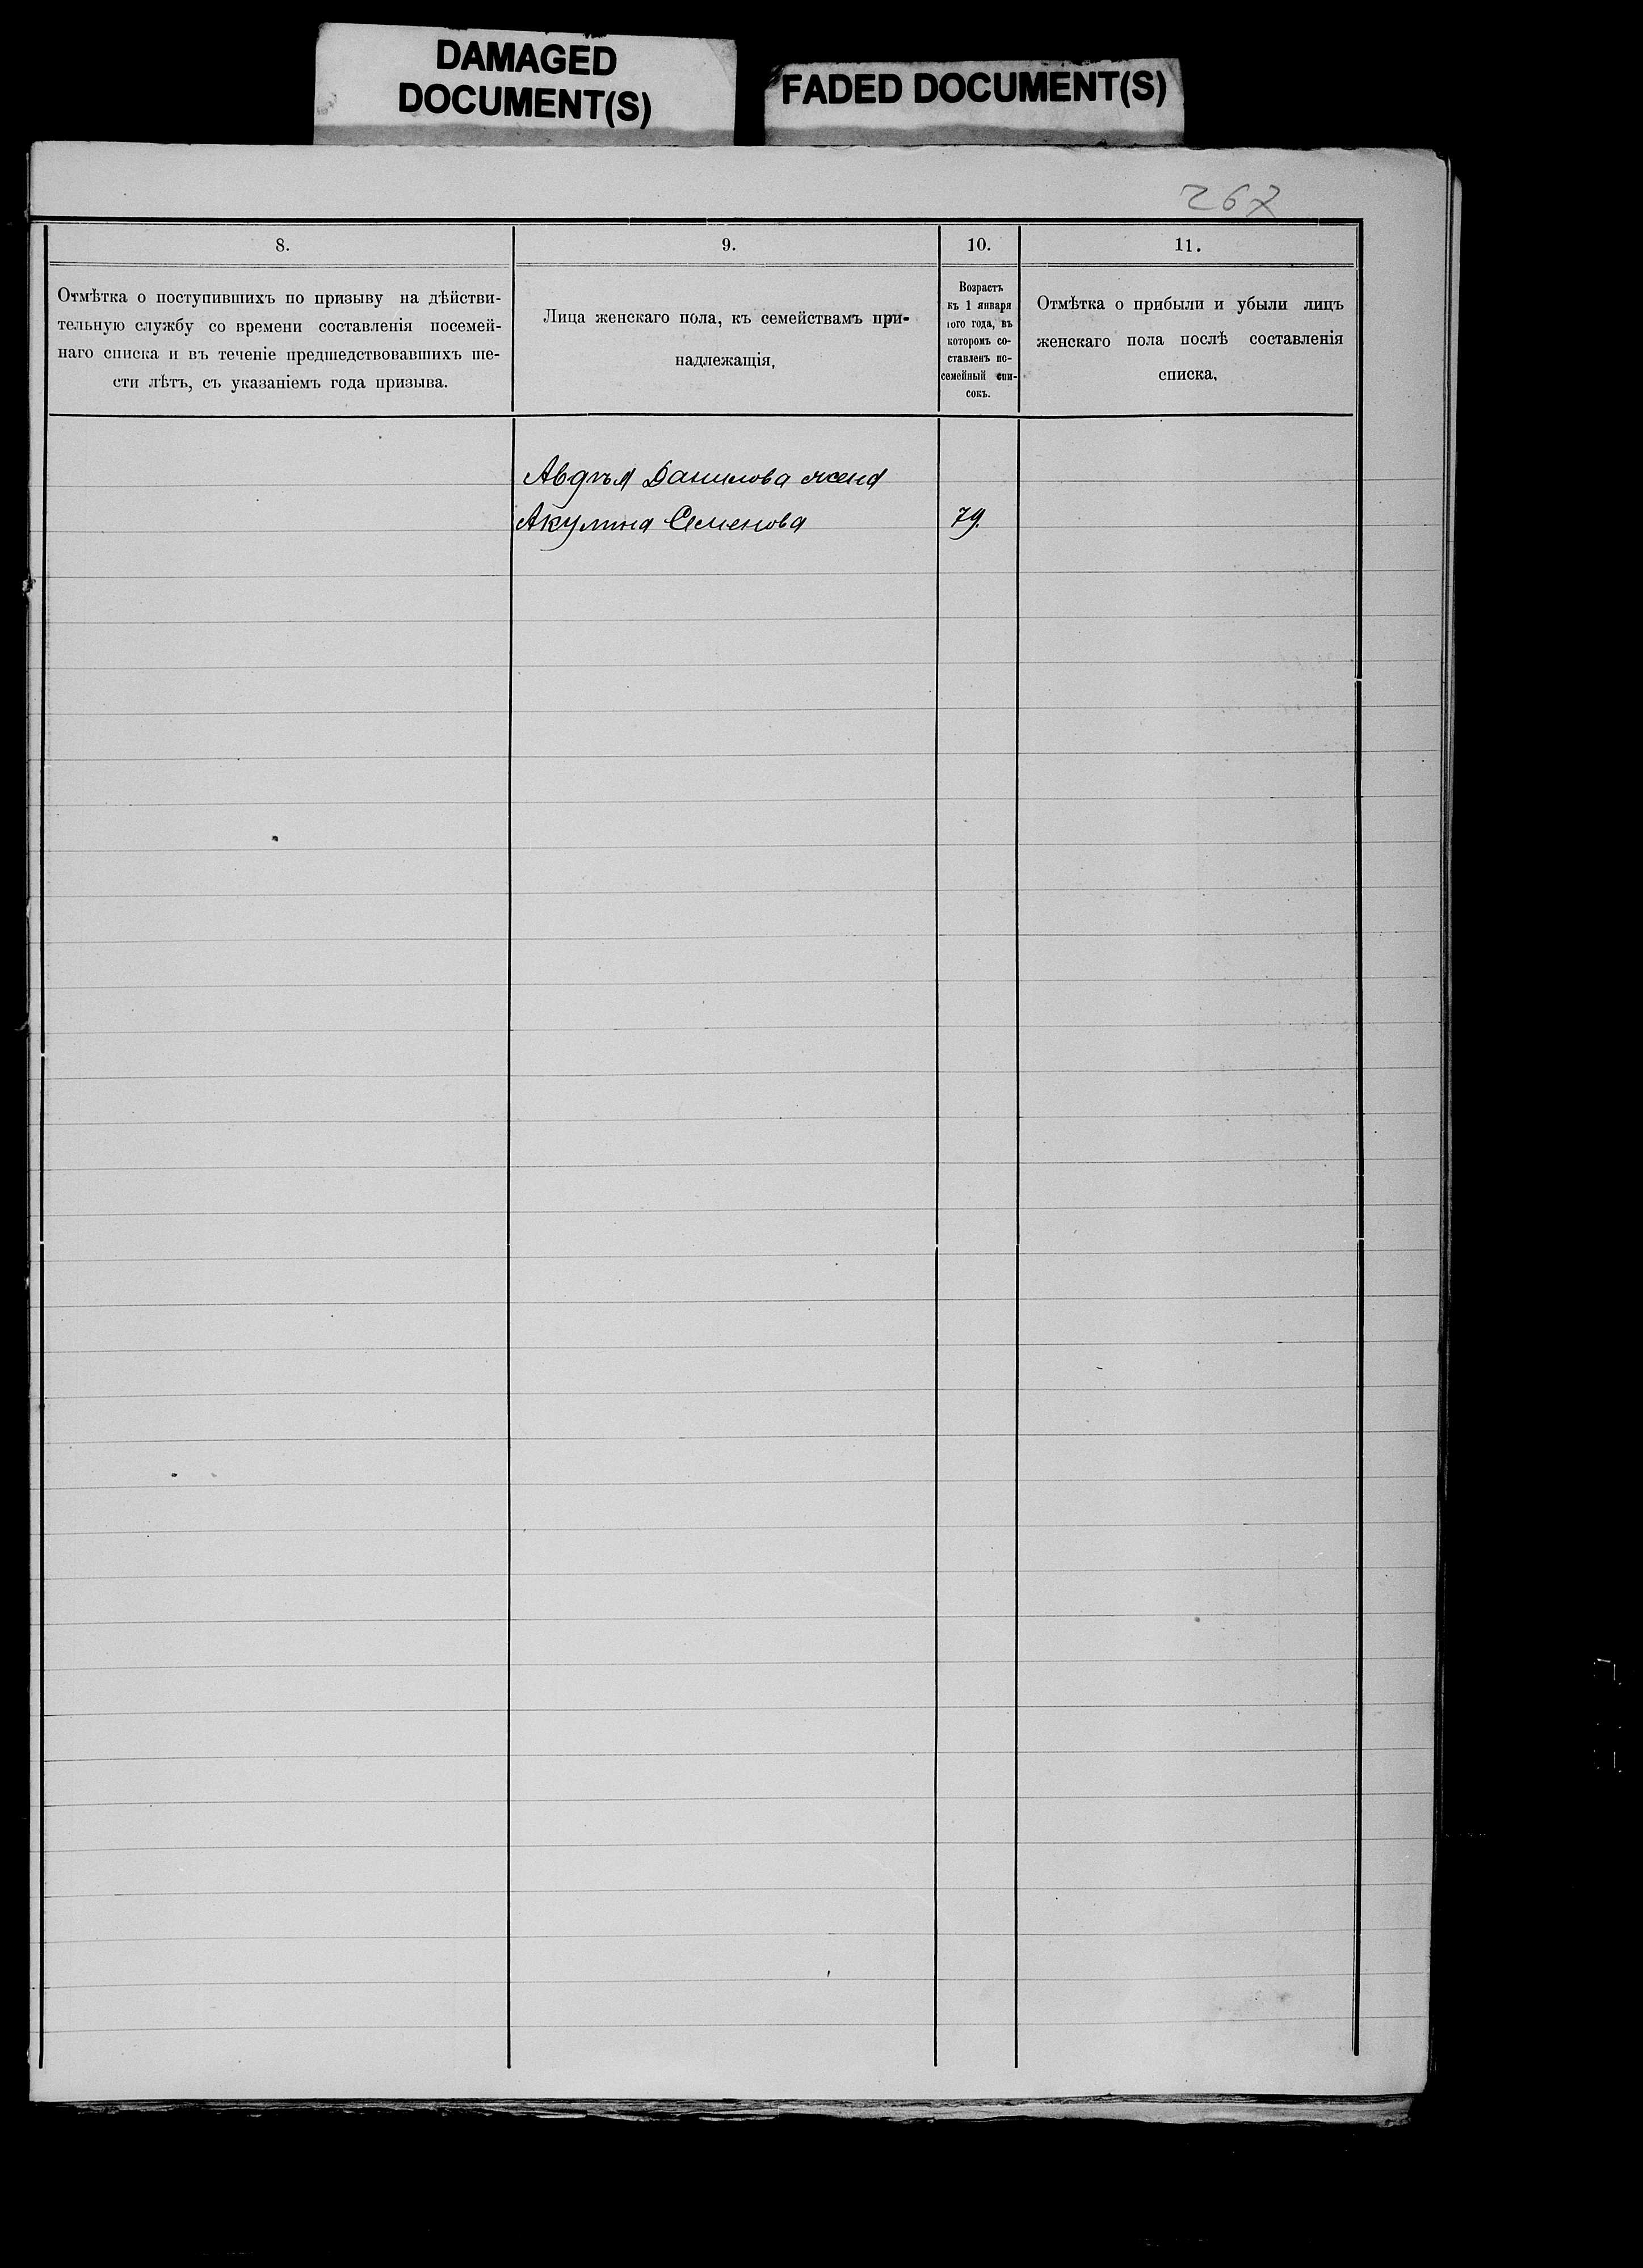 DAMAGED
DOCUMENT(S)
FADED DOCUMENT(S)
267
8.
Отмѣтка о поступившихъ по призыву на дѣйстви-
тельную службу со времени составленія посемей-
наго списка и въ теченіе предшедствовавшихъ ше-
сти лѣтъ, съ указаніемъ года призыва.
9.
Лица женскаго пола, къ семействамъ при-
надлежащія,
10.
Возрастъ
къ 1 января
того года, въ
которомъ со-
ставленъ по-
семейный спи-
сокъ.
11.
Отмѣтка о прибыли и убыли лицъ
женскаго пола послѣ составленія
списка,
Авдѣя Данилова жена
Акулина Семенова 79.